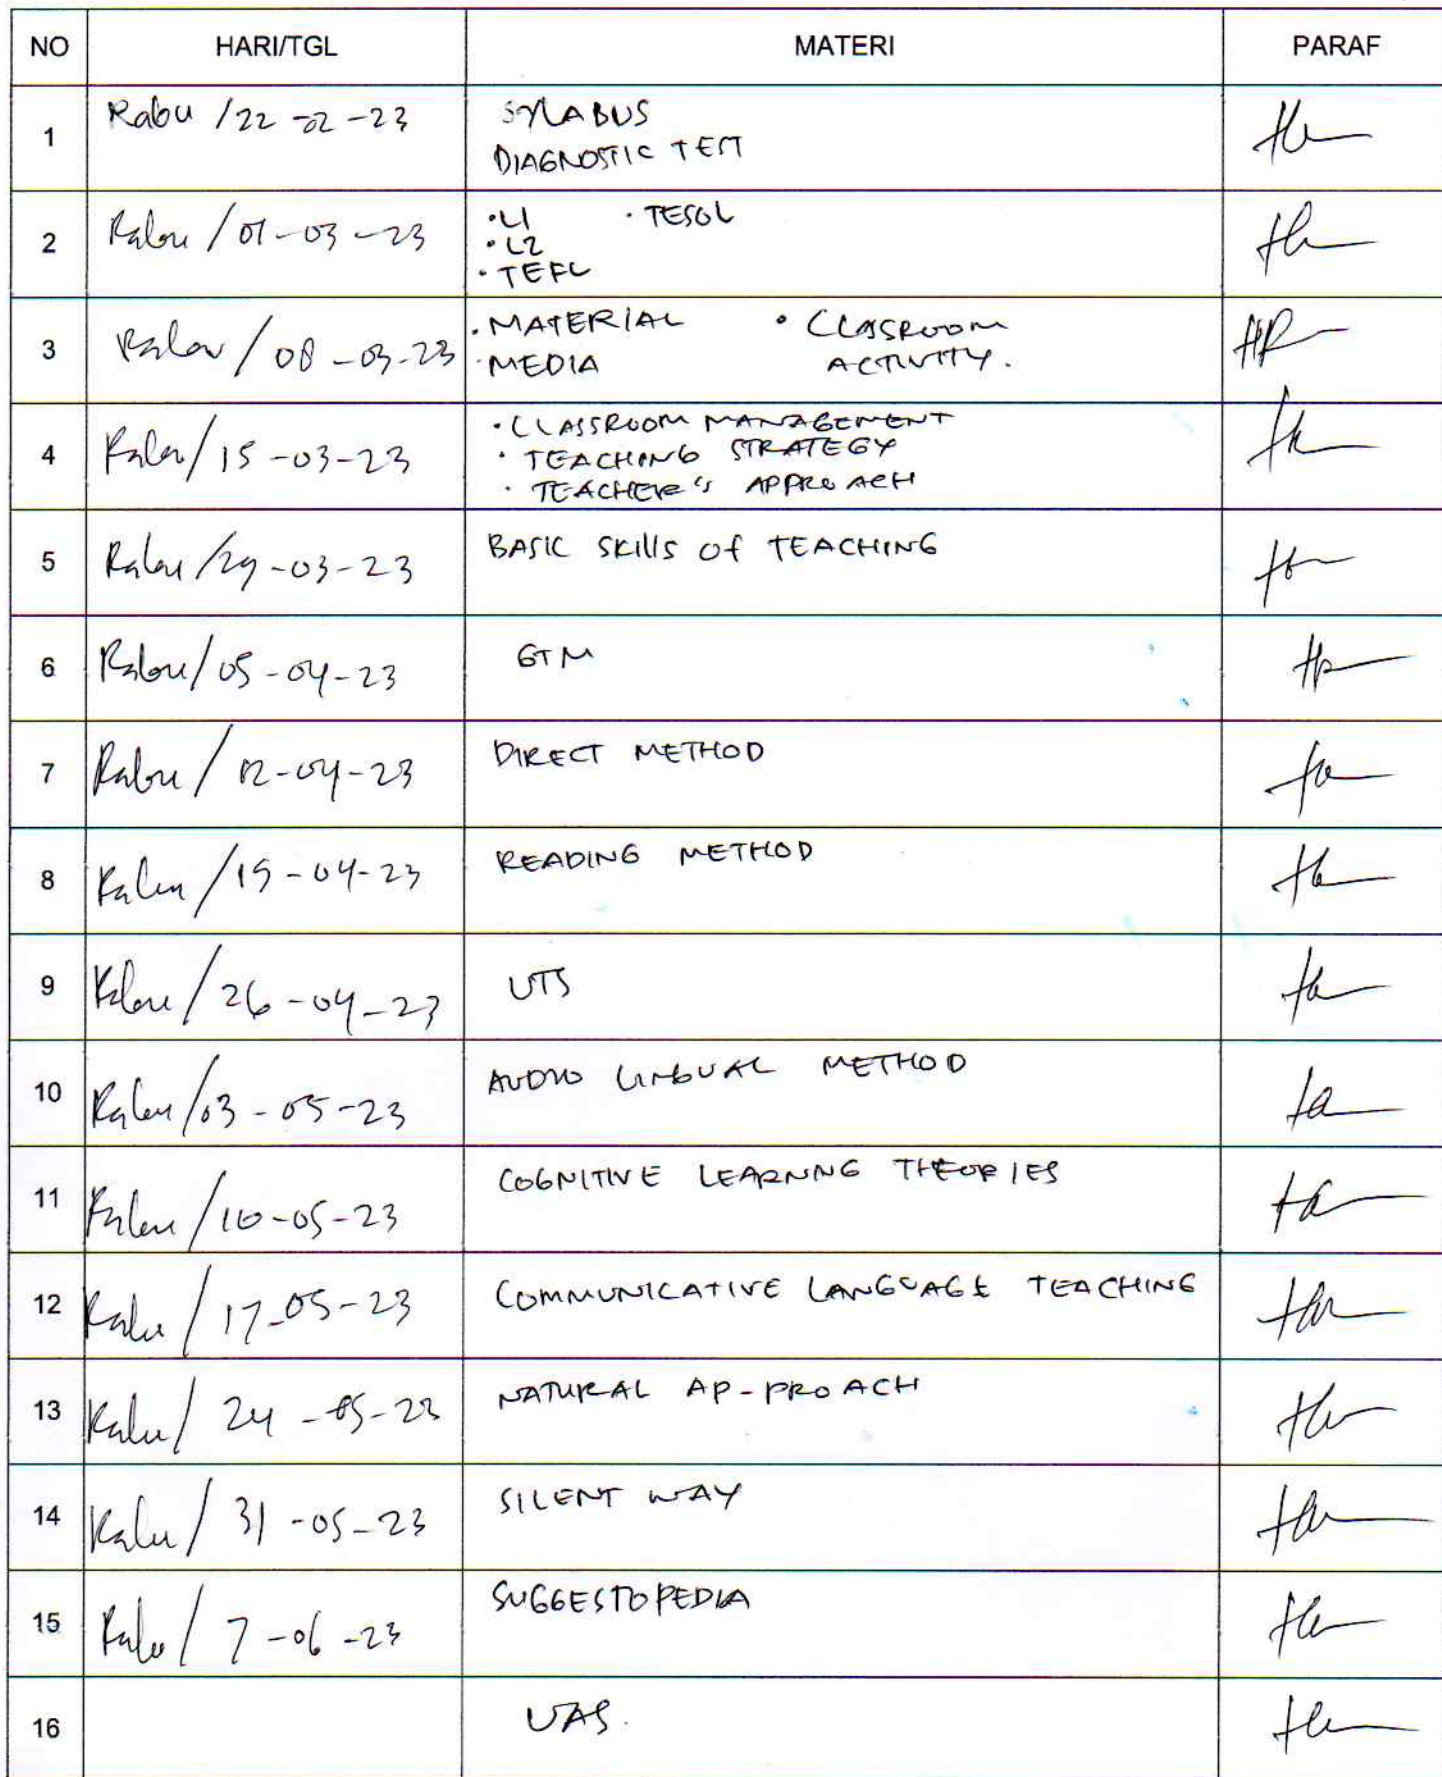 NO HARI/TGL MATERI PARAF
1 Rabu / 22-02-23 SYLABUS
DIAGNOSTIC TEST
2 Rabu / 01-03-23 • L1 • TESOL
• L2
• TEFL
3 Rabu / 08-03-23 • MATERIAL • CLASSROOM
• MEDIA ACTIVITY.
4 Rabu / 15-03-23 • CLASSROOM MANAGEMENT
• TEACHING STRATEGY
• TEACHER'S APPROACH
5 Rabu / 29-03-23 BASIC SKills Of TEACHING
6 Rabu / 05-04-23 GTM
7 Rabu / 12-04-23 DIRECT METHOD
8 Rabu / 19-04-23 READING METHOD
9 Rabu / 26-04-23 UTS
10 Rabu / 03-05-23 AUDIO LINGUAL METHOD
11 Rabu / 10-05-23 COGNITIVE LEARNING THEORIES
12 Rabu / 17-05-23 COMMUNICATIVE LANGUAGE TEACHING
13 Rabu / 24-05-23 NATURAL AP-PROACH
14 Rabu / 31-05-23 SILENT WAY
15 Rabu / 7-06-23 SUGGESTOPEDIA
16 UAS.